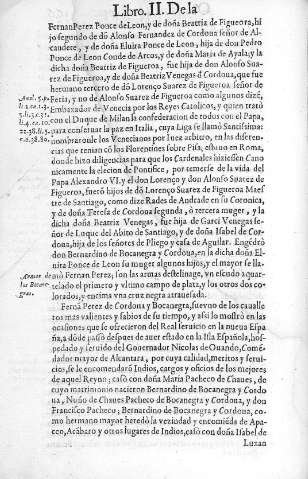 Libro. II. De la
Fernan Perez Ponce de Leon, y de doña Beatriz de Figueroa, hi
jo segundo de dõ Alonso Fernandez de Cordoua señor de Al-
caudete, y de doña Eluira Ponce de Leon, hija de don Pedro
Ponce de Leon Conde de Arcos, y de doña Maria de Ayala; y la
dicha doña Beatriz de Figueroa, fue hija de don Alonso Sua-
rez de Figueroa, y de doña Beatriz Venegas d Cordoua, que fue
hermano tercero de dõ Lorenço Suarez de Figueroa señor de
Feria, y no de Alonso Suarez de Figueroa como algunos dizẽ,
Embaxador de Venecia por los Reyes Catolicos, y quien tratò
con el Duque de Milan la confederacion de todos con el Papa,
para conseruar la paz en Italia, cuya Liga se llamò Santissima:
nombraronle los Venecianos por Iuez arbitro, en las diferen-
cias que tenian cõ los Florentines sobre Pisa, estuuo en Roma,
donde hizo diligencias para que los Cardenales hiziessen Cano
nicamente la eleccion de Pontifice, por temerse de la vida del
Papa Alexandro VI. y el don Lorenço, y don Alonso Suarez de
Figueroa, fuerõ hijos de dõ Lorenço Suarez de Figueroa Maes
tre de Santiago, como dize Rades de Andrade en su Coronica,
y de doña Teresa de Cordoua segunda, ò tercera muger, y la
dicha doña Beatriz Venegas, fue hija de Garci Venegas señor
de Luque del Abito de Santiago, y de doña Isabel de Cor-
doua, hija de los señores de Pliego y casa de Aguilar. Engẽdrò
don Bernardino de Bocanegra y Cordoua, en la dicha doña El
uira Ponce de Leon su muger algunos hijos, y el mayor se lla-
mò Fernan Perez, son las armas deste linage, vn escudo aquar-
telado el primero y vltimo campo de plata, y los otros dos co-
lorados, y encima vna cruz negra atrauesada.
Fernã Perez de Cordoua y Bocanegra, fue vno de los cauалle
ros mas valientes y sabios de su tiempo, y assi lo mostrò en las
ocasiones que se ofrecieron del Real seruicio en la nueua Espa
ña, a dõde passò despues de auer estado en la Isla Española, hos-
pedado y seruido del Gouernador Nicolas de Ouando, Comẽ-
dador mayor de Alcantara, por cuya calidad, meritos y serui-
cio, se le encomendarõ Indios, cargos y oficios de los mejores
de aquel Reyno; casò con doña Maria Pacheco de Chaues, de
cuyo matrimonio nacieron Bernardino de Bocanegra y Cor-
doua, Nuño de Chaues Pacheco de Bocanegra y Cordoua, y don
Francisco Pacheco; Bernardino de Bocanegra y Cordoua, co-
mo hermano mayor heredò la vezindad y encomiẽda de Apa-
ceo, Acãbaro y otros lugares de Indios, casò con doña Isabel de
Luxan